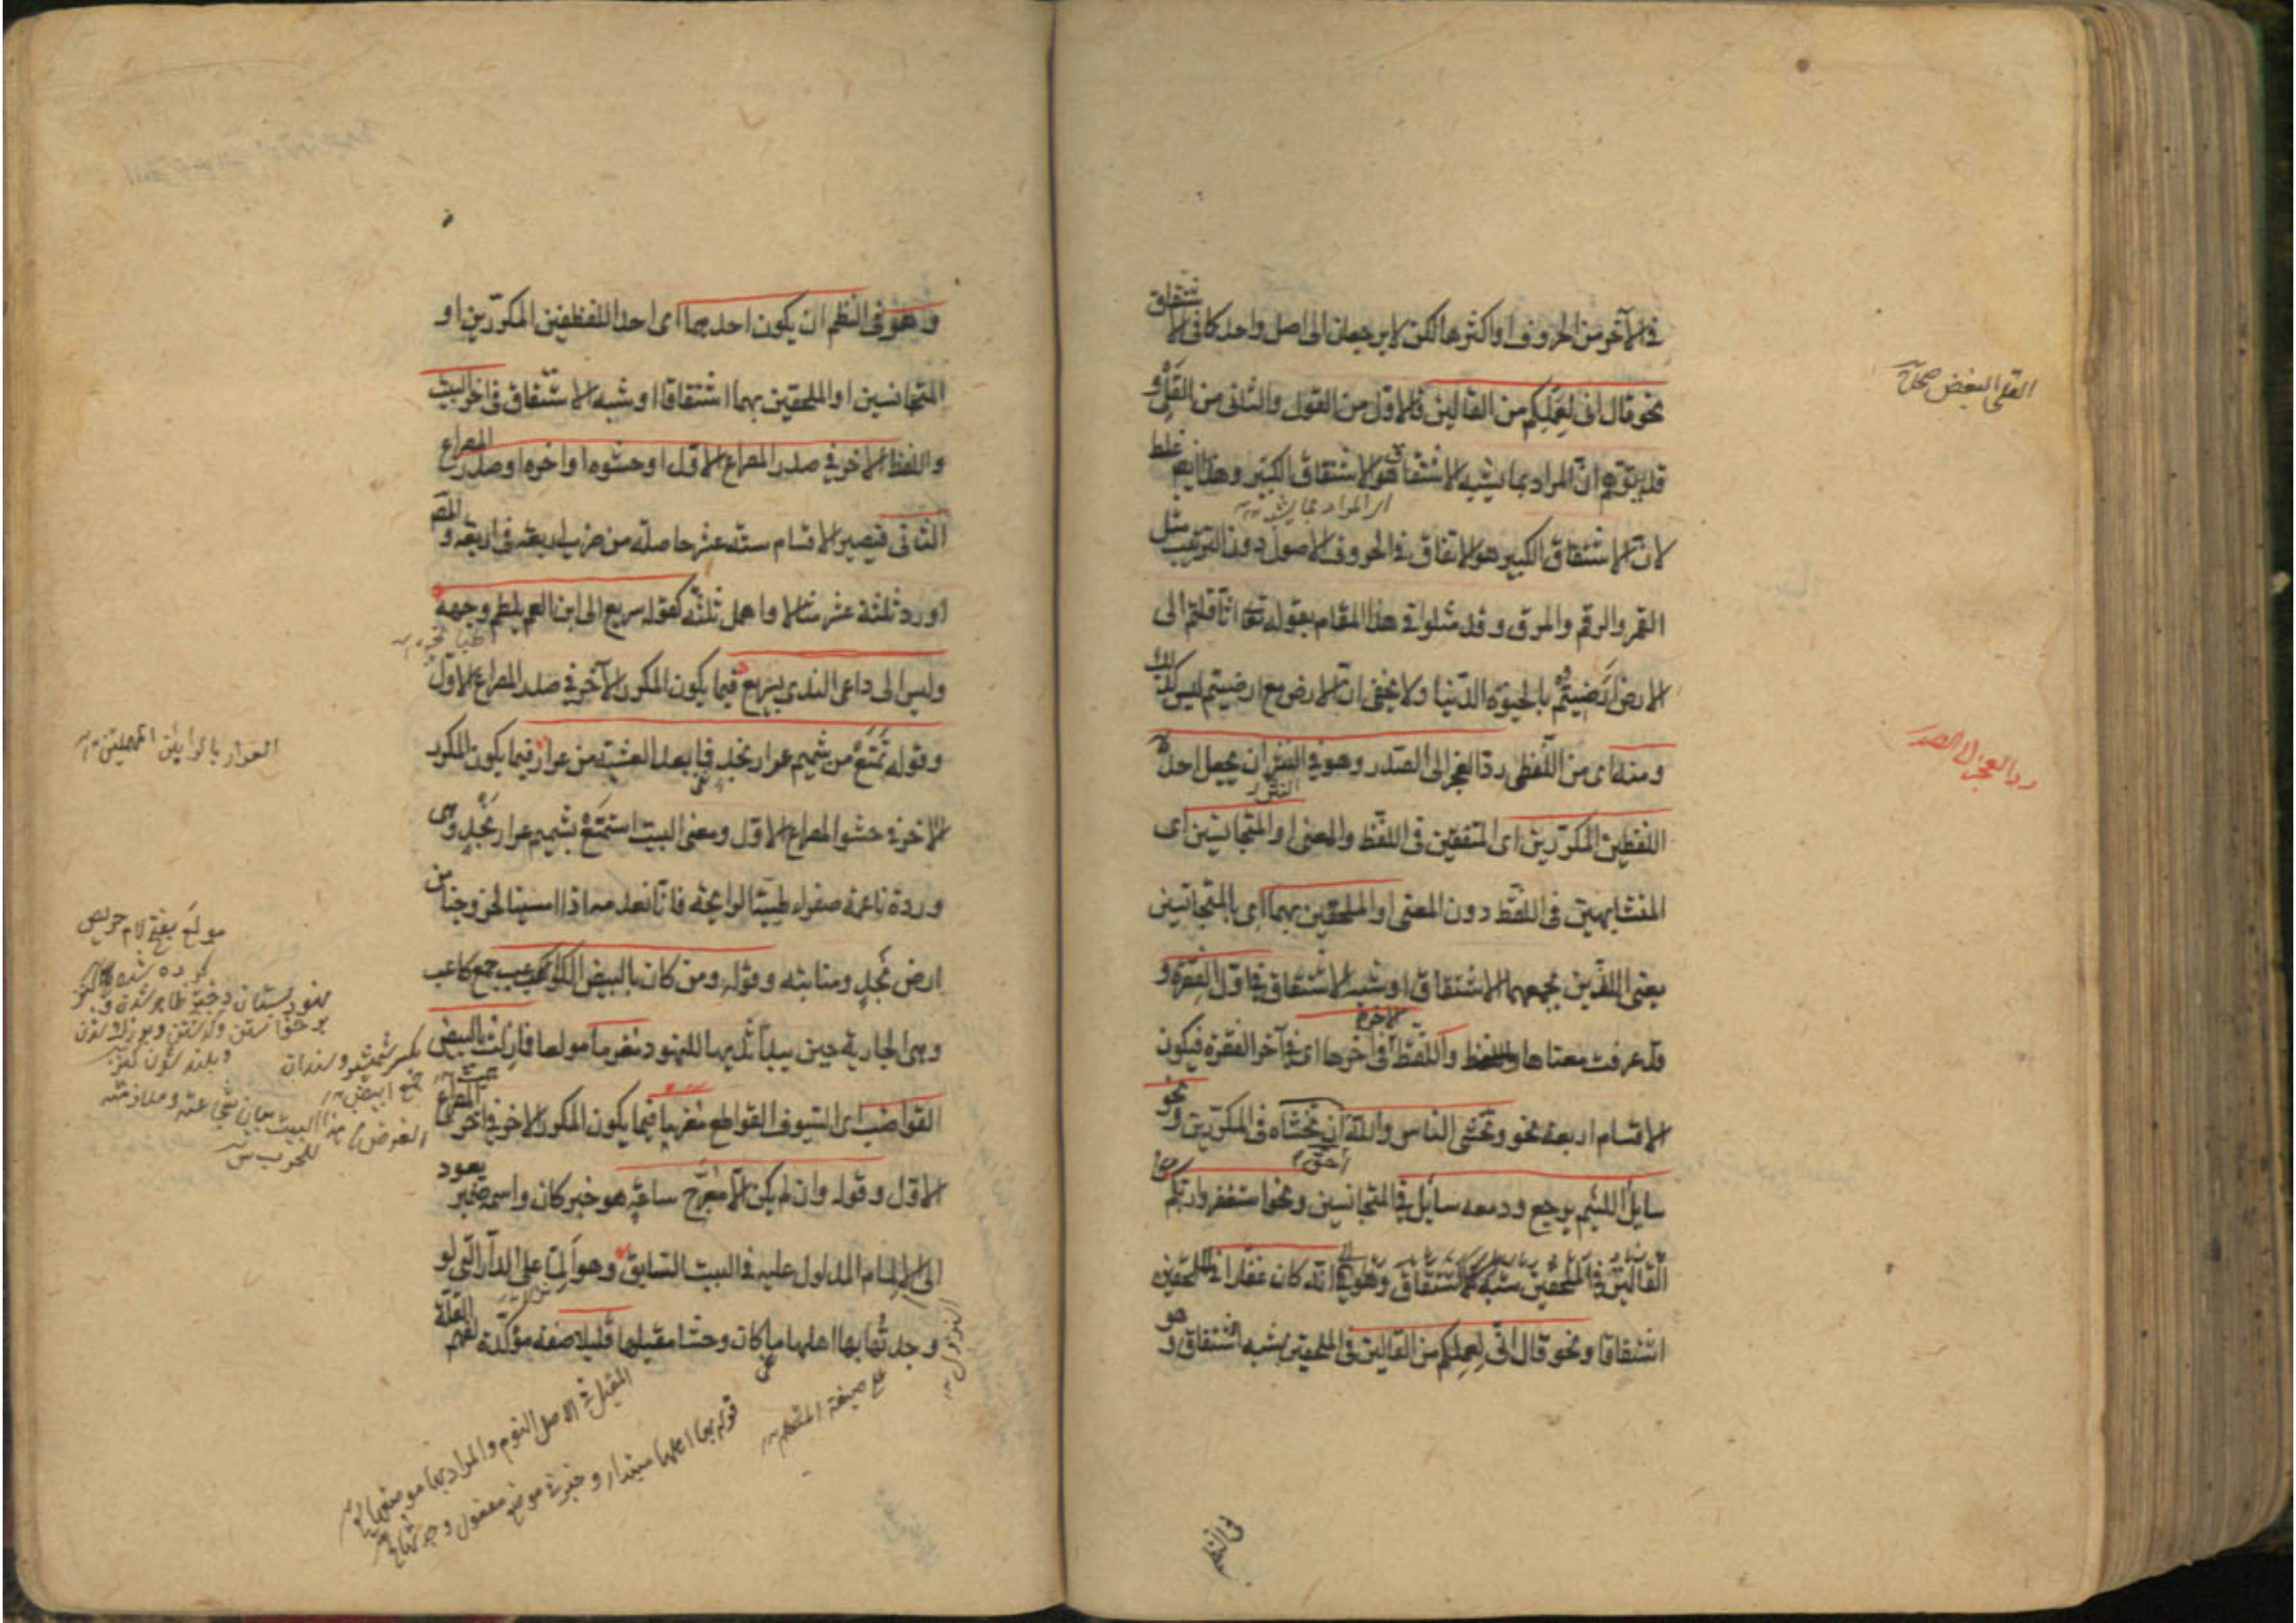 في الآخر من الحروف او اكثرها لكن لا يرجعان الى اصل واحد كما في الاشتقاق
نحو قال اني لعملكم من القالين فالاول من القول والثاني من القلى و
قد يتوهم ان المراد بما يشبه الاشتقاق هو الاشتقاق الكبير وهذا ايضا غلط
لان الاشتقاق الكبير هو الاتفاق في الحروف الاصول دون الترتيب مثل
القمر والرقم والمرق وقد مثلوا في هذا المقام بقوله تعا اثاقلتم الى
الارض ارضيتم بالحيوة الدنيا ولا يخفى ان الارض مع ارضيتم ليس كذلك
ومنه اى من اللفظى رد العجز الى الصدر وهو في النثر ان يجعل احد
اللفظين المكررين اى المتفقين في اللفظ والمعنى او المتجانسين اى
المتشابهين في اللفظ دون المعنى او الملحقين بهما اى بالمتجانسين
يعنى اللذين يجمعهما الاشتقاق او شبه الاشتقاق في اول الفقرة و
قد عرفت معناها واللفظ الاخر في آخرها اى في آخر الفقرة فيكون
الاقسام اربعة نحو وتخشى الناس والله احق ان تخشاه في المكررين ونحو
سايل اللئيم يرجع ودمعه سايل في المتجانسين ونحو استغفروا ربكم
انه كان غفارا في الملحقين
اشتقاقا ونحو قال اني لعملكم من القالين في الملحقين بشبه اشتقاق وهو
القلى البغض صحاح
رد العجز الى الصدر
في النظم
وهو في النظم ان يكون احدهما اى احد اللفظين المكررين او
المتجانسين او الملحقين بهما اشتقاقا او شبه الاشتقاق في اخر البيت
واللفظ الاخر في صدر المصراع الاول او حشوه او اخره او صدر المصراع
الثانى فيصير الاقسام ستة عشر حاصلة من ضرب اربعة في اربعة والمص
اورد ثلثة عشر مثالا واهمل ثلثة كقوله سريع الى ابن العم يلطم وجهه
وليس الى داعى الندى بسريع فيما يكون المكرر الآخر في صدر المصراع الاول
وقوله تمتع من شميم عرار نجد فما بعد العشية من عرار فيما يكون المكرر
الاخر في حشو المصراع الاول ومعنى البيت استمتع بشميم عرار نجد وهى
وردة ناعمة صفراء طيبة الرايحة فانا نعدمه اذا امسينا لخروجنا من
ارض نجد ومنابته وقوله ومن كان بالبيض الكواعب جمع كاعب
وهى الجارية حين يبدأ ثديها للنهود مغرما مولعا فما زلت بالبيض
القواضب اى السيوف القواطع مغرما فيما يكون المكرر الاخر في اخر المصراع
الاول وقوله وان لم يكن الا معرج ساعة هو خبر كان واسمه ضمير يعود
الى الالمام المدلول عليه في البيت السابق وهو الما على الدار التى لو
وجدتها بها اهلها ما كان وحشا مقيلها قليلا صفة مؤكدة لفهم القلة
العرار بالرايين المهملتين
مولع بفتح لام حريص
كرده شده
الغرض بهذا البيت بيان شجاعته وملازمته
للحرب
المقيل في الاصل النوم والمراد بها موضعها
قوله بها اهلها مبتدا وخبر في موضع مفعول وجدتها